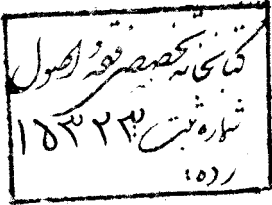 کتابخانه تخصصی فقه و اصول
شماره ثبت ۱۵۳۲۳
رده: